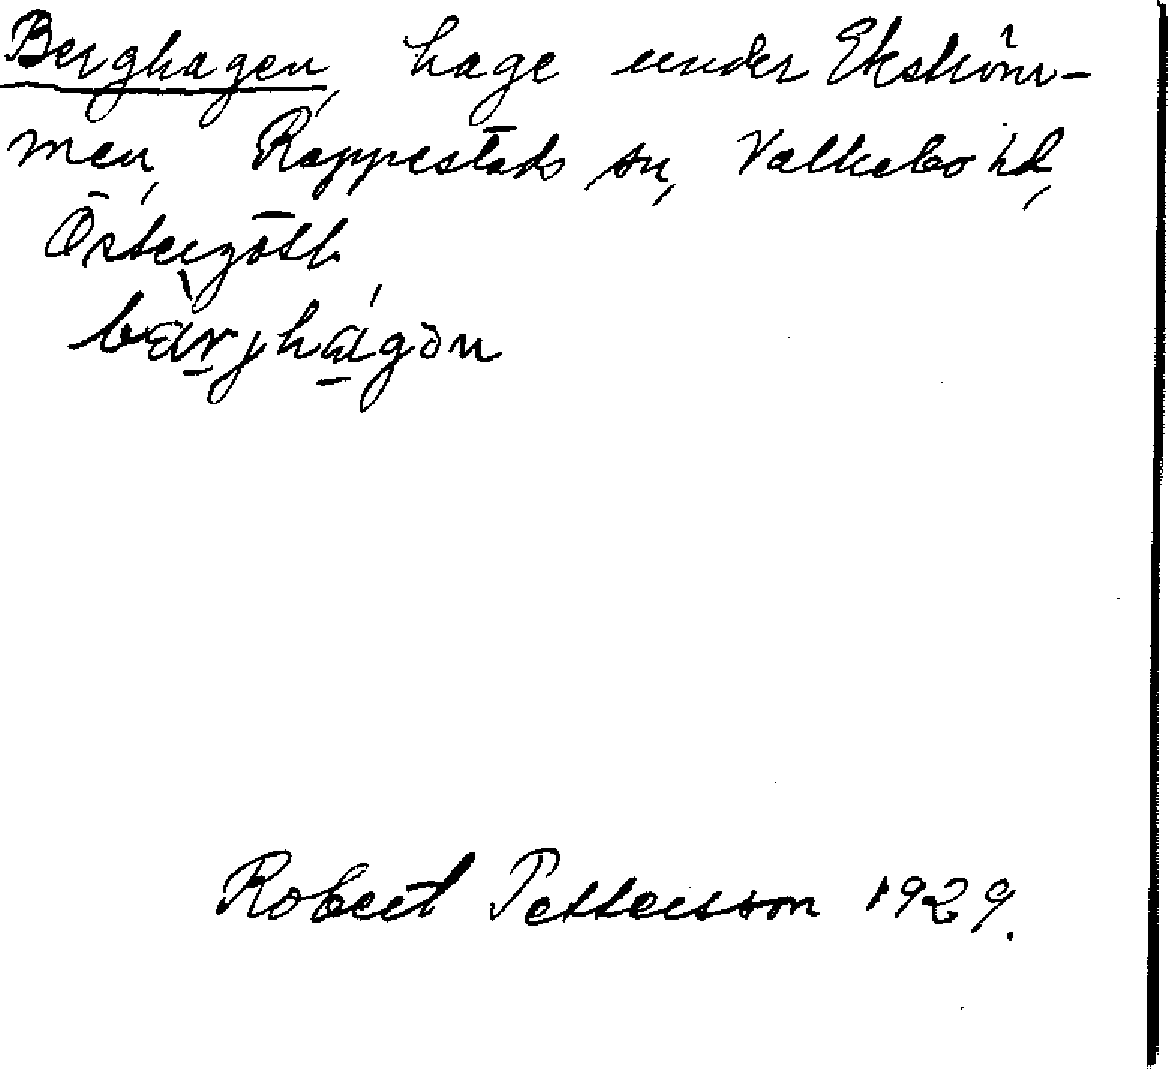 Berghagen, hage under Ekström-
men, Rappestads sn, Valkebo hd,
Östergötl.
bàrjhágən
Robert Pettersson 1929.